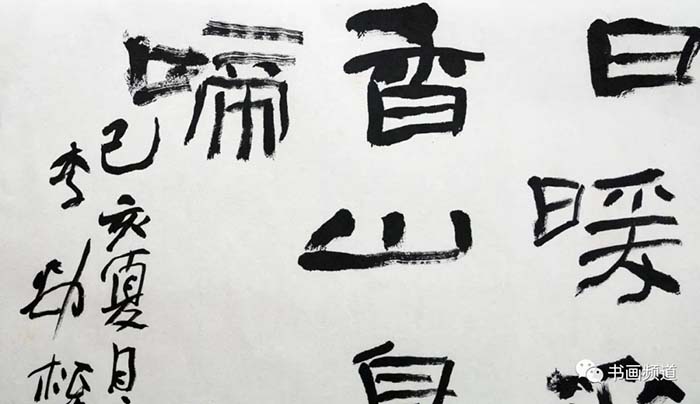 日暖
香山
啼
己亥夏月
李
书画频道